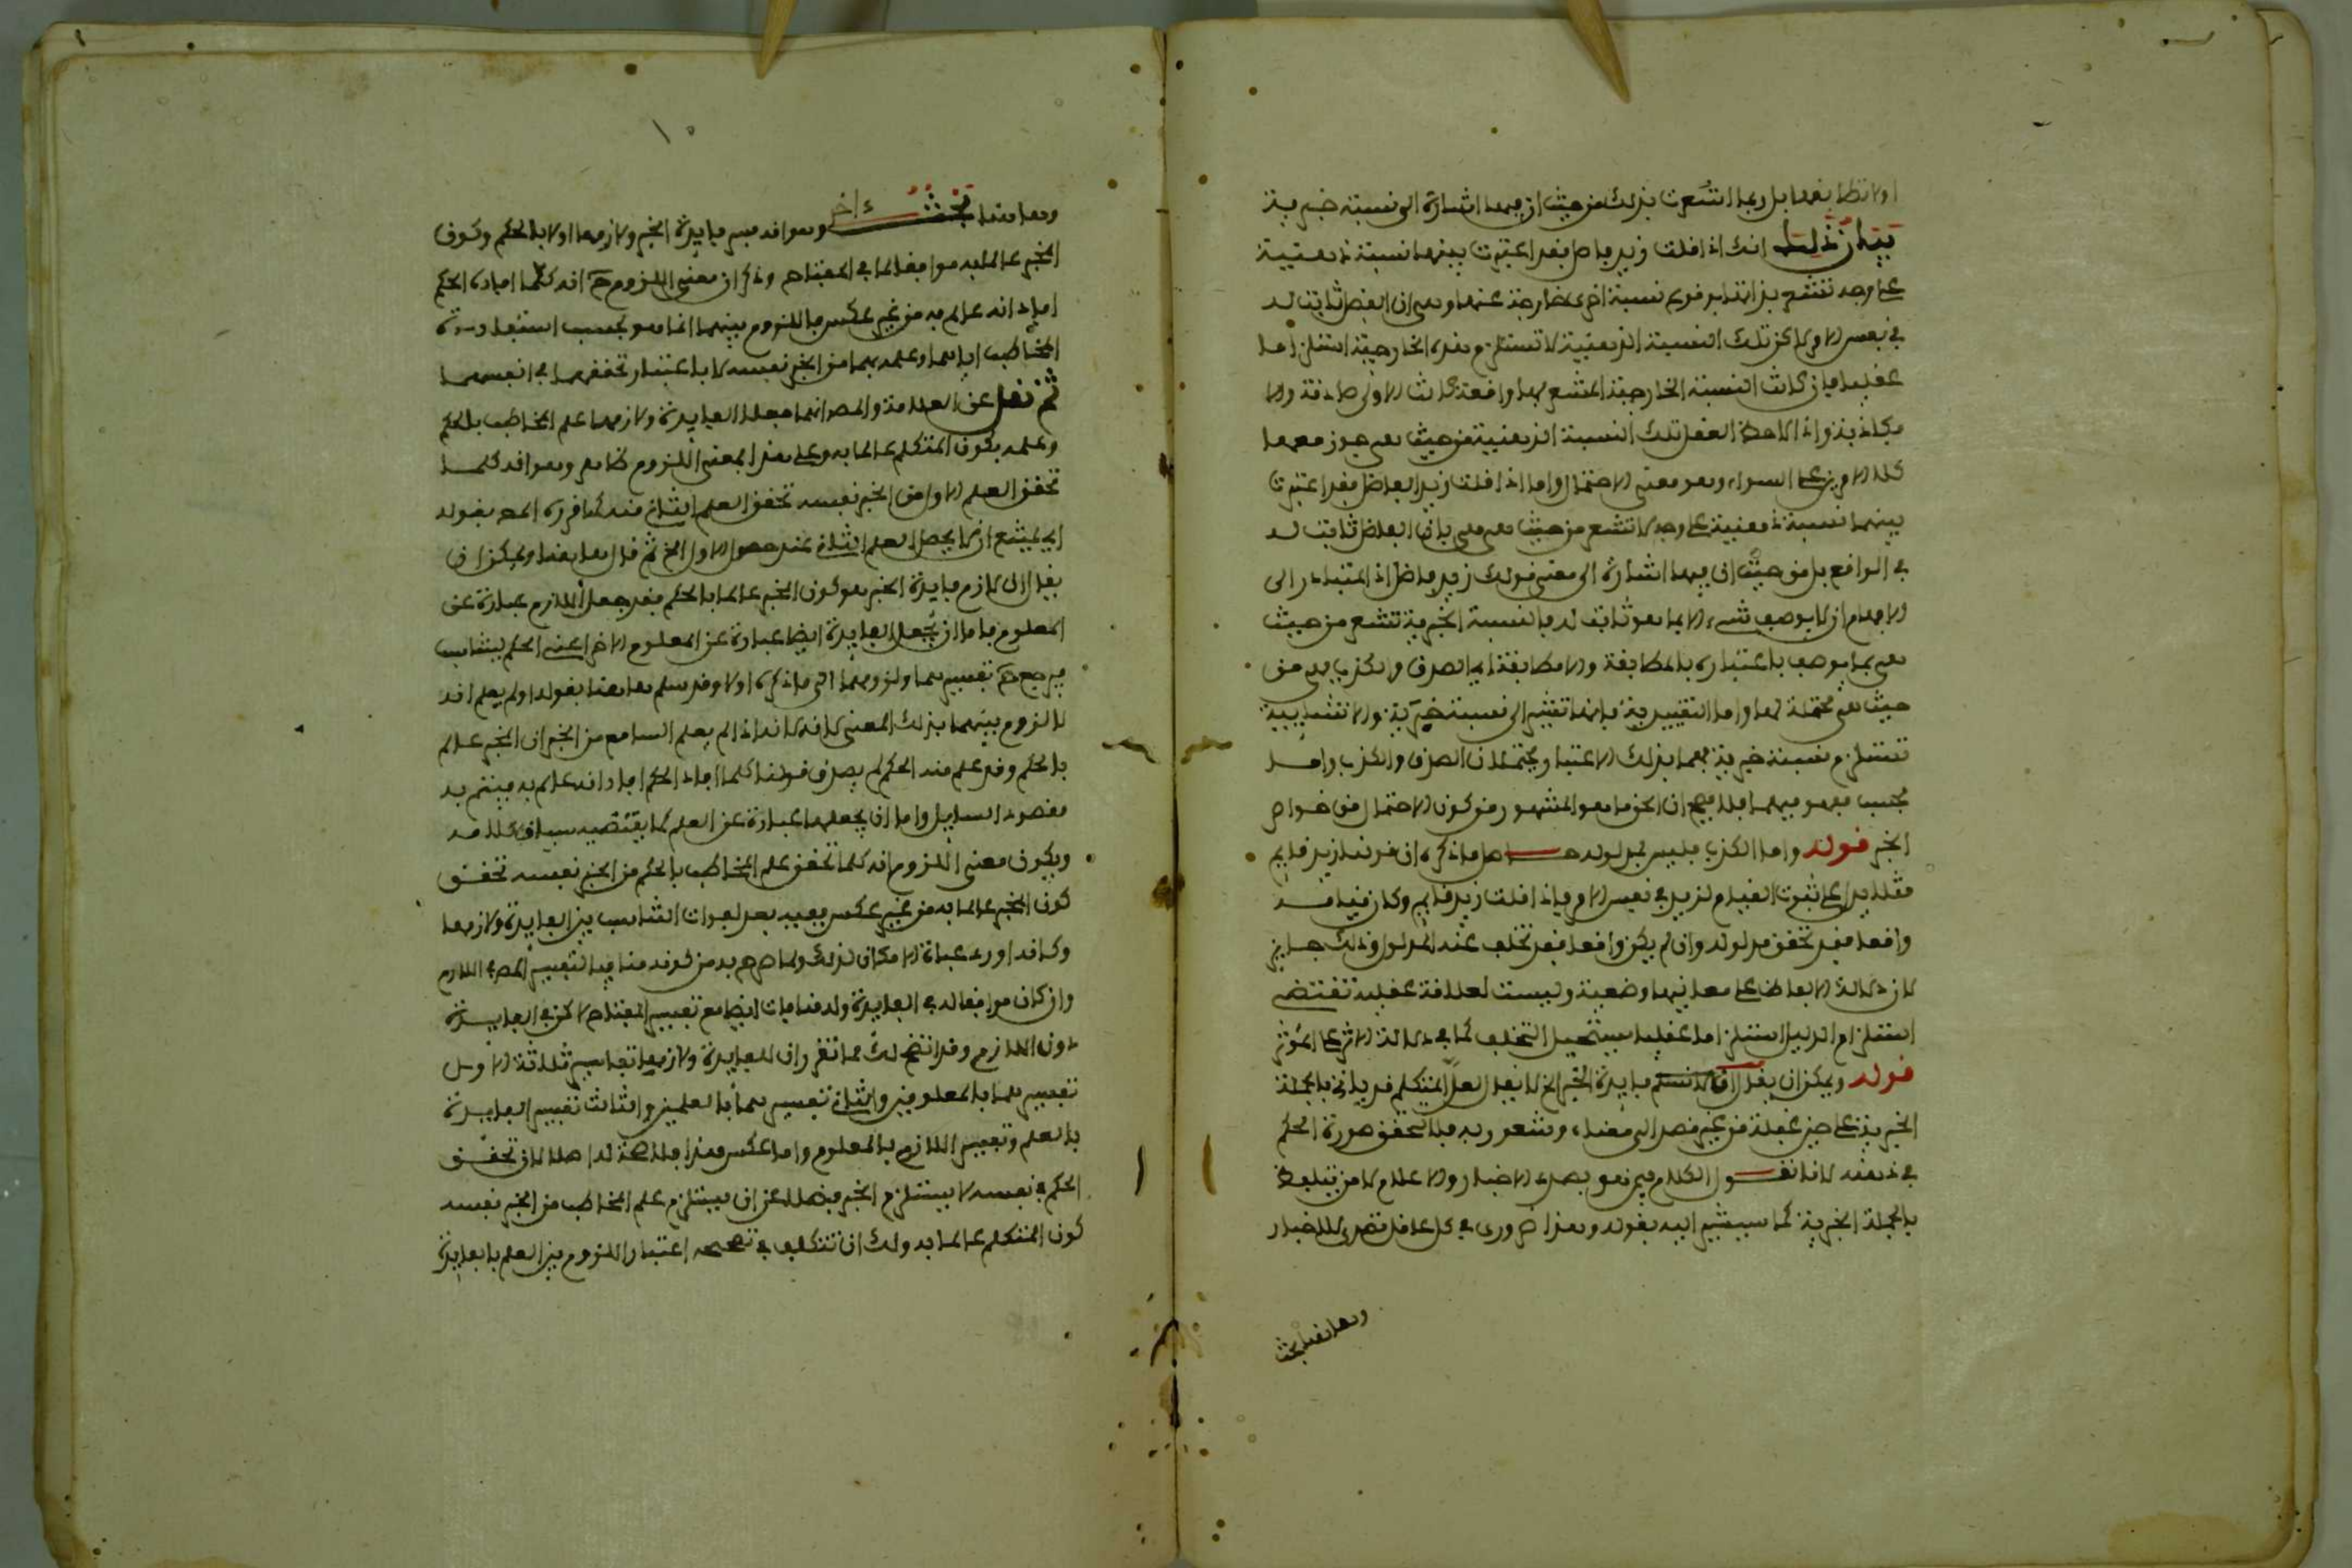 او لا تطابقها بل ربما اشعرت بذلك من حيث ان فيها اشارة الى نسبة خبرية
بيان ذلك انك اذا قلت زيد فاضل فقد اعتبرت بينهما نسبة ذهنية
على وجه تشعر بذاتها بوقوع نسبة اخرى خارجة عنها وهي ان الفضل ثابت له
في نفس الامر لكن تلك النسبة الذهنية لا تستلزم هذه الخارجية استلزاما
عقليا فان كانت النسبة الخارجية المشعر بها واقعة كانت الاولى صادقة والا
فكاذبة واذا لاحظ العقل تلك النسبة الذهنية من حيث هي جوز معها
كلا الامرين على السواء وهو معنى الاحتمال واما اذا قلت زيد الفاضل فقد اعتبرت
بينهما نسبة ذهنية على وجه لا تشعر من حيث هي هي بان الفضل ثابت له
في الواقع بل من حيث ان فيها اشارة الى معنى قولك زيد فاضل اذ المتبادر الى
الافهام ان لا يوصف شيء الا بما هو ثابت له فالنسبة الخبرية تشعر من حيث
هي بما يوصف باعتباره بالمطابقة واللا مطابقة اي الصدق والكذب فهي من
حيث هي محتملة لهما واما التقييدية فانها تشير الى نسبة خبرية والانشائية
تستلزم نسبة خبرية فهما بذلك الاعتبار يحتملان الصدق والكذب واما
بحسب مفهوميهما فلا فصح ان الحق ما هو المشهور من كون الاحتمال من خواص
الخبر قوله واما الكذب فليس بمدلوله حاصل ما ذكره ان قولنا زيد قايم
مثلا يدل على ثبوت القيام لزيد في نفس الامر فاذا قلت زيد قايم وكان قيامه
واقعا فقد تحقق مدلوله وان لم يكن واقعا فقد تخلف عنه المدلول وذلك جايز
لان دلالة الالفاظ على معانيها وضعية وليست لعلاقة عقلية تقتضي
استلزام الدليل استلزاما عقليا يستحيل التخلف كما في دلالة الاثر على المؤثر
قوله ويمكن ان يقال لازم فايدة الخبر الخ لا يقال لعل المتكلم قد ياتي بالجملة
الخبرية على حين غفلة من غير قصد الى معناه وشعور به فلا تتحقق صورة الحكم
في ذهنه لانا نقول الكلام فيمن هو بصدد الاخبار والاعلام لا من يتلفظ
بالجملة الخبرية كما سيشير اليه بقوله وهذا ضروري في كل عاقل تصدى للاخبار
وهاهنا بحث
١٠
وهاهنا بحث ءاخر وهو انه فسر فايدة الخبر ولازمها اولا بالحكم وكون
المخبر عالما به موافقا لما في المفتاح وذكر ان معنى اللزوم ح انه كلما افاد الحكم
افاد انه عالم به من غير عكس فاللزوم بينهما انما هو بحسب استفادة
المخاطب اياهما وعلمه بهما من الخبر نفسه لا باعتبار تحققهما في انفسهما
ثم نقل عن العلامة والمص انهما جعلا الفايدة ولازمها علم المخاطب بالحكم
وعلمه بكون المتكلم عالما به وعلى هذا المعنى اللزوم ظاهر وهو انه كلما
تحقق العلم الاول من الخبر نفسه تحقق العلم الثاني منه كما قرره المص بقوله
اي يمتنع ان لا يحصل العلم الثاني عند حصول الاول الخ ثم قال هاهنا ويمكن ان
يقال ان لازم فايدة الخبر هو كون المخبر عالما بالحكم فقد جعل اللازم عبارة عن
المعلوم فاما ان يجعل الفايدة ايضا عبارة عن المعلوم الاخر اعني الحكم ليتناسب
فيرجع ح تفسيرهما ولزومهما الى ما ذكره اولا وقد سلم هاهنا بقوله اولم يعلم انه
لا لزوم بينهما بذلك المعنى لانه اذا لم يعلم السامع من الخبر ان المخبر عالم
بالحكم وقد علم منه الحكم لم يصدق قولنا كلما افاد الحكم افاد انه عالم به فيتم به
مقصود السايل واما ان يجعلها عبارة عن العلم كما يقتضيه سياق كلامه
ويكون معنى اللزوم انه كلما تحقق علم المخاطب بالحكم من الخبر نفسه تحقق
كون المخبر عالما به من غير عكس ففيه بعد لفوات التناسب بين الفايدة ولازمها
وكانه اورد عبارة الامكان لذلك ولما صرح به من كونه منافيا لتفسير المص اللازم
وان كان موافقا له في الفايدة وله منافاة ايضا مع تفسير المفتاح لكن في الفايدة
دون اللازم وقد اتضح لك مما تقرر ان للفايدة ولازمها تفاسير ثلاثة الاول
تفسيرهما بالمعلومين والثاني تفسيرهما بالعلمين والثالث تفسير الفايدة
بالعلم وتفسير اللازم بالمعلوم واما عكس هذا فلا صحة له اصلا لان تحقق
الحكم في نفسه لا يستلزم الخبر فضلا عن ان يستلزم علم المخاطب من الخبر نفسه
كون المتكلم عالما به ولك ان تتكلف في تصحيحه اعتبار اللزوم بين العلم بالفايدة